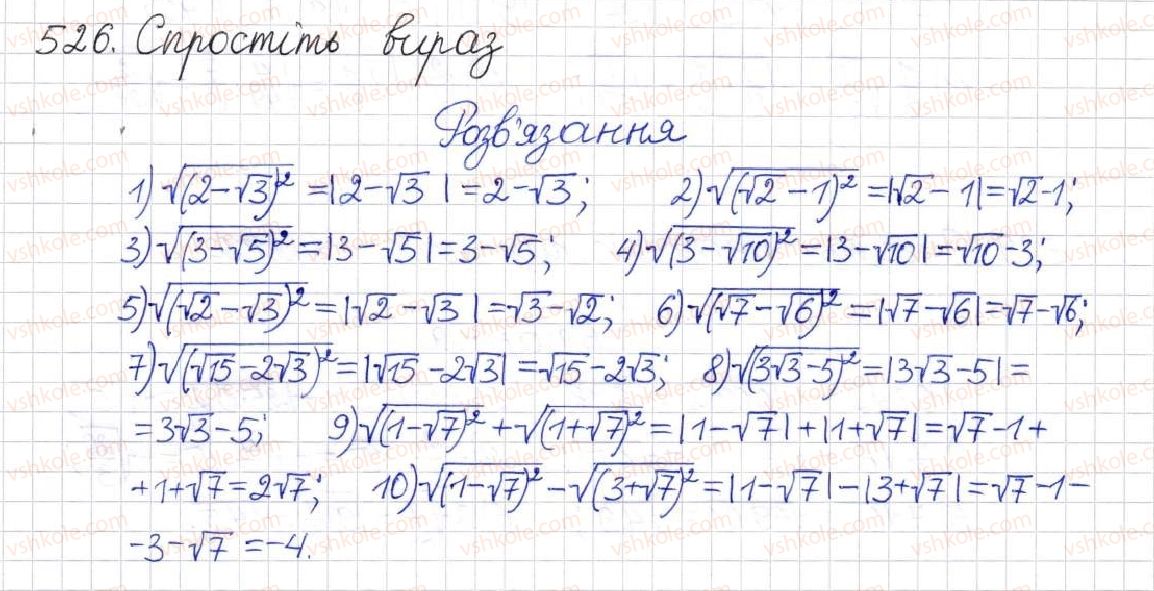 526. Спростіть вираз
Розв'язання
1) √(2-√3)² = |2-√3| = 2-√3; 2) √(√2-1)² = |√2-1| = √2-1;
3) √(3-√5)² = |3-√5| = 3-√5; 4) √(3-√10)² = |3-√10| = √10-3;
5) √(√2-√3)² = |√2-√3| = √3-√2; 6) √(√7-√6)² = |√7-√6| = √7-√6;
7) √(√15-2√3)² = |√15-2√3| = √15-2√3; 8) √(3√3-5)² = |3√3-5| =
= 3√3-5; 9) √(1-√7)² + √(1+√7)² = |1-√7| + |1+√7| = √7-1+
+1+√7 = 2√7; 10) √(1-√7)² - √(3+√7)² = |1-√7| - |3+√7| = √7-1-
-3-√7 = -4.